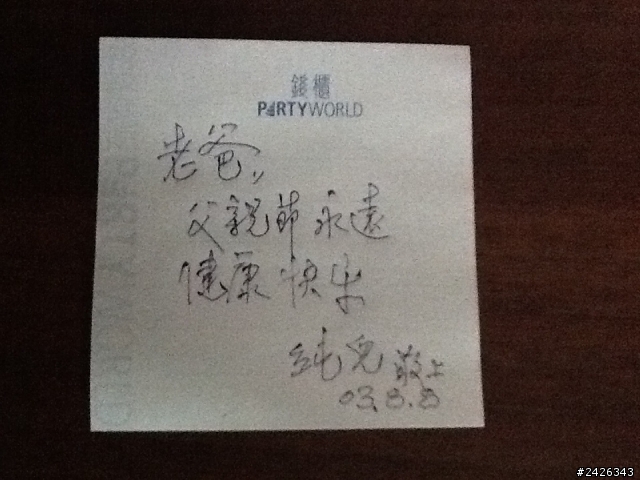 錢櫃
PARTYWORLD
老爸,,
父親節永遠
健康快樂
純兒敬上
03.8.8
#2426343